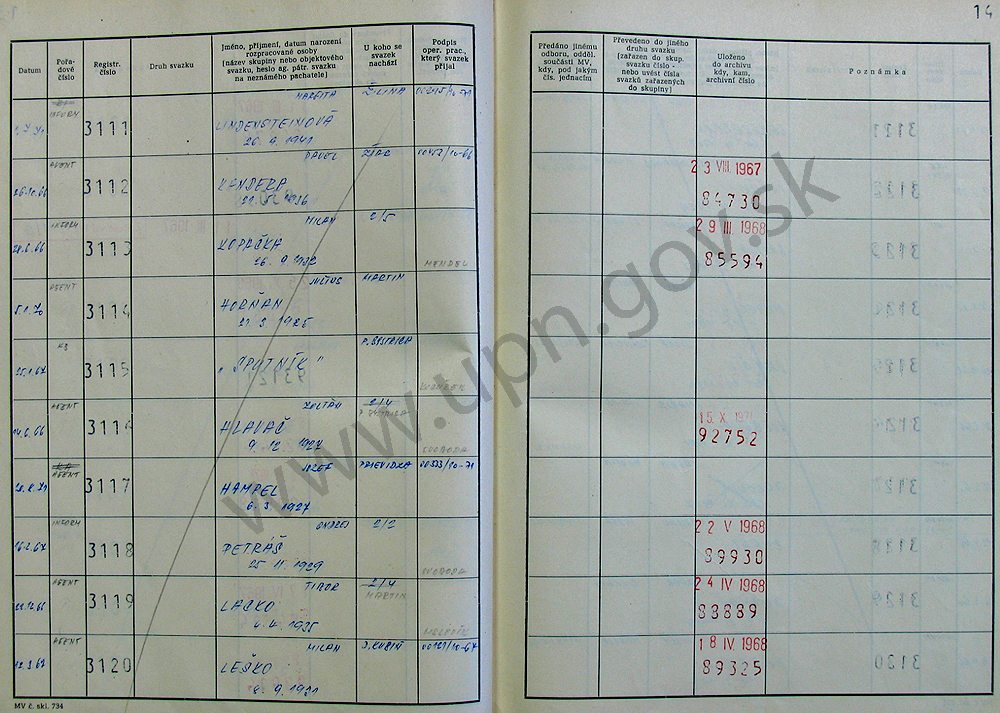 14
Datum
Pořa-
dové
číslo
Registr.
číslo
Druh svazku
Jméno, příjmení, datum narození
rozpracované osoby
(název skupiny nebo objektového
svazku, heslo ag. pátr. svazku
na neznámého pachatele)
U koho se
svazek
nachází
Podpis
oper. prac.,
který svazek
přijal
Předáno jinému
odboru, odděl.
součásti MV,
kdy, pod jakým
čís. jednacím
Převedeno do jiného
druhu svazku
(zařazen do skup.
svazku číslo -
nebo uvést čísla
svazků zařazených
do skupiny)
Uloženo
do archivu
kdy, kam,
archivní číslo
Poznámka
INFORM 3111 MARGITA ŽILINA
LINDENSTEINOVÁ
AGENT PAVEL ŽIAR
26.10.66 3112 KANDERA 23 VIII. 1967
84730
INFORM MILAN 2/5
3113 KOPAČKA 29 III 1968
26. 9. 1932 MENDEL 85594
AGENT JULIUS MARTIN
5.1.70 3114 HORŇAN
KS B. BYSTRICA
3115 „SPUTNÍK"
AGENT ZOLTÁN 2/4
3116 HLAVAČ 15. X. 1971
9. 12. 1927 SVOBODA 92752
AGENT JOZEF PRIEVIDZA 00533/10-71
3117 HAMPEL
6. 3. 1927
INFORM ONDREJ 2/2
3118 PETRÁŠ 22 V 1968
25 11. 1929 SVOBODA 89930
AGENT TIBOR 2/4
MARTIN
3119 LACKO 24 IV 1968
4. 4. 1935 83889
AGENT MILAN D. KUBIN
12.3.67 3120 LEŠKO 18 IV. 1968
8. 9. 1921 89325
MV č. skl. 734
www.upn.gov.sk